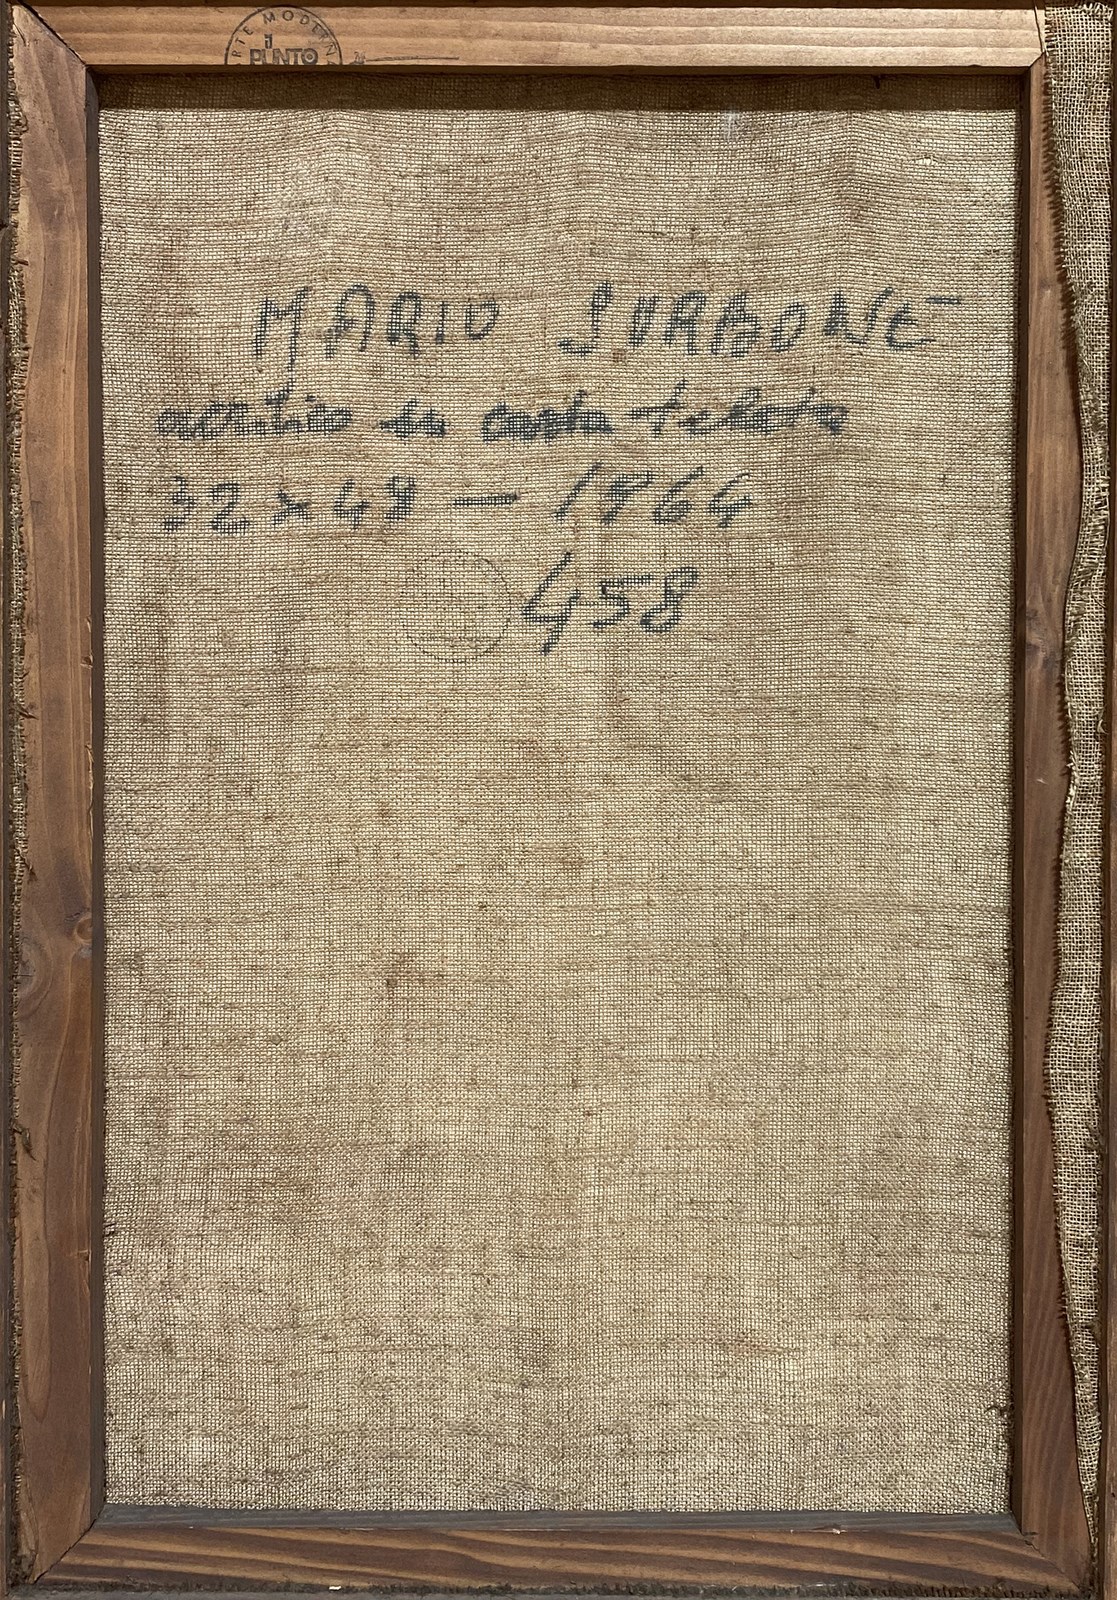 ARTE MODERN
il
PUNTO
MARIO SURBONE
acrilico su carta telata
32x48 — 1964
458